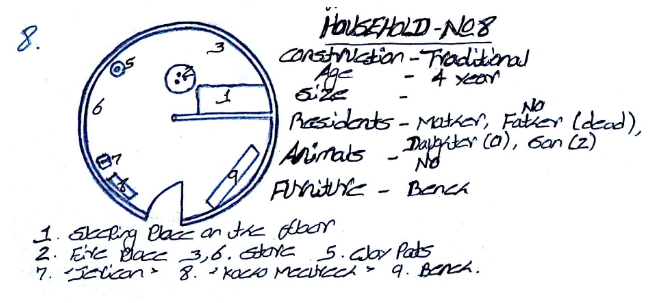 8.
HOUSEHOLD - NO.8
Construction - Traditional
Age - 4 year
Size -
Residents - Mother, NO Father (dead),
Daughter (0), Son (2)
Animals - NO
Furniture - Bench
3
5
2
1
6
7
8
9
1. Sleeping Place on the floor
2. Fire Place 3,6. Store 5. Clay Pots
7. "Jelican" 8. 9. Bench.